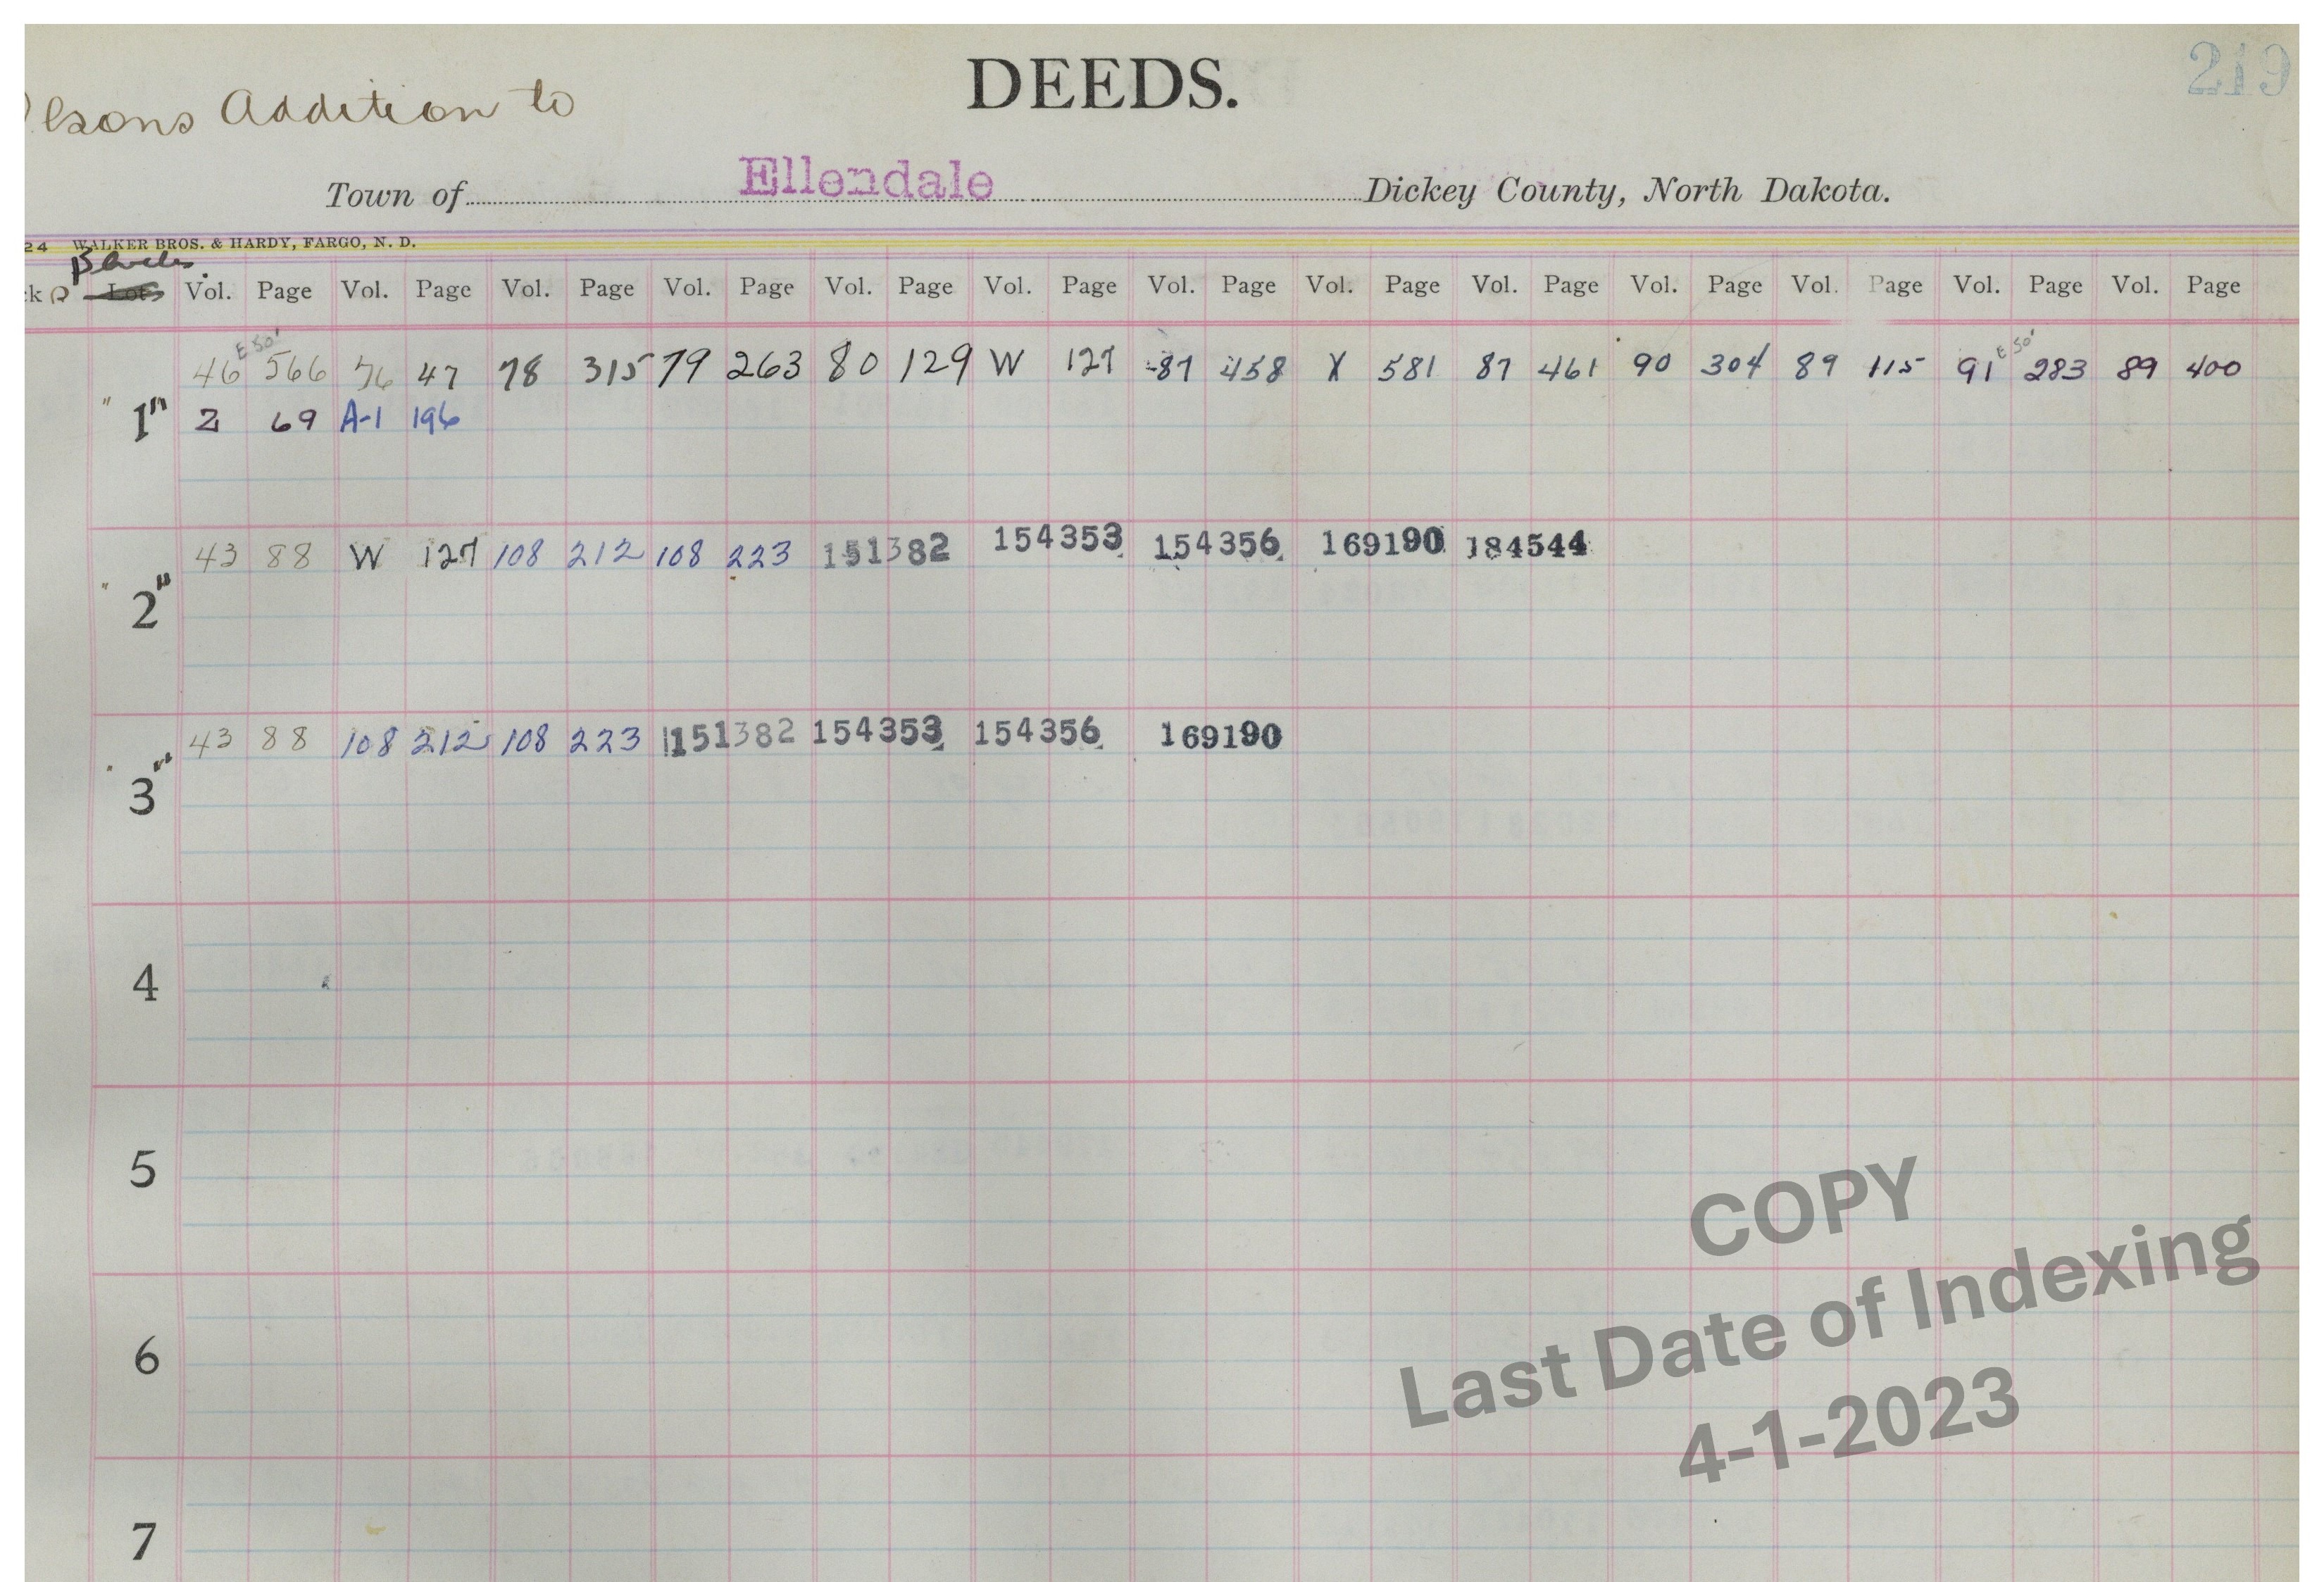 DEEDS.
219
lsons Addition to
Town of Ellendale Dickey County, North Dakota.
24 WALKER BROS. & HARDY, FARGO, N. D.
Lots Vol. Page Vol. Page Vol. Page Vol. Page Vol. Page Vol. Page Vol. Page Vol. Page Vol. Page Vol. Page Vol. Page Vol. Page Vol. Page
E 50' E 50'
46 566 76 47 78 315 79 263 80 129 W 127 87 458 X 581 87 461 90 304 89 115 91 283 89 400
" 1" Z 69 A-1 196
43 88 W 127 108 212 108 223 151382 154353 154356 169190 184544
" 2"
43 88 108 212 108 223 151382 154353 154356 169190
" 3"
4
5
6
7
COPY
Last Date of Indexing
4-1-2023